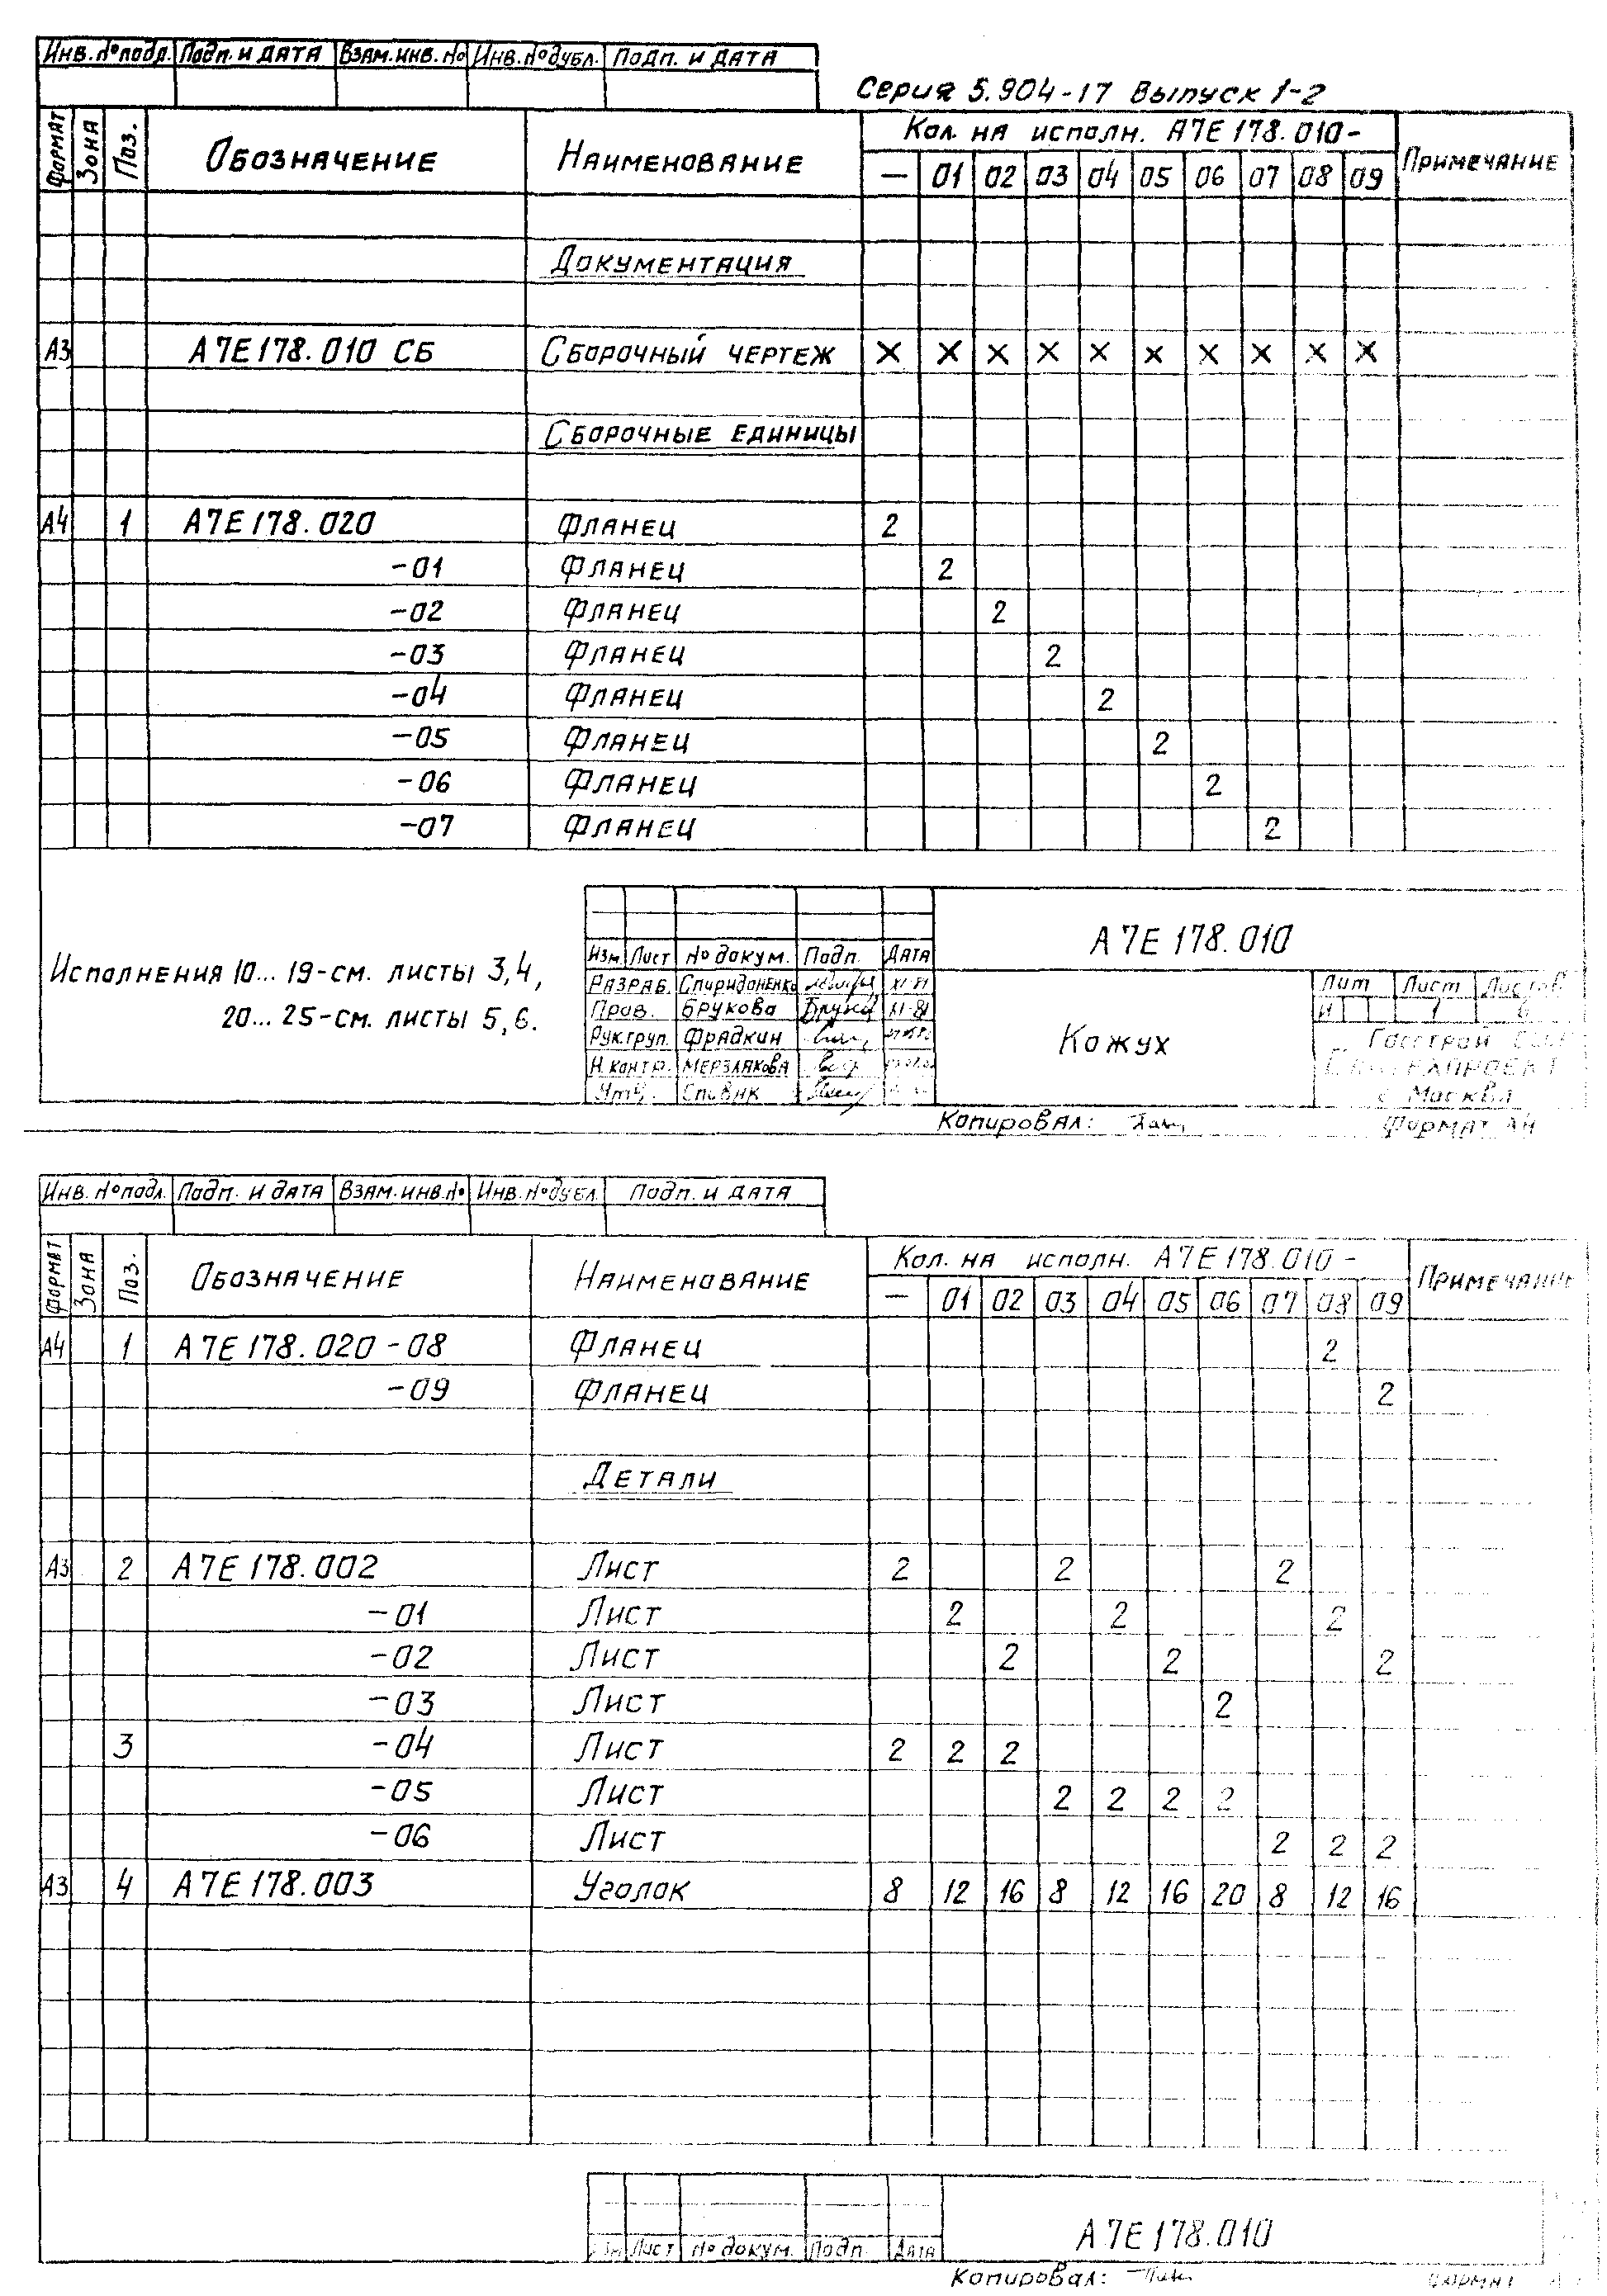 Инв. № подл. Подп. и дата Взам. инв. № Инв. № дубл. Подп. и дата
Серия 5.904-17 Выпуск 1-2
Формат Зона Поз. Обозначение Наименование Кол. на исполн. А7Е178.010- Примечание
— 01 02 03 04 05 06 07 08 09
Документация
А3 А7Е178.010 СБ Сборочный чертеж × × × × × × × × × ×
Сборочные единицы
А4 1 А7Е178.020 Фланец 2
-01 Фланец 2
-02 Фланец 2
-03 Фланец 2
-04 Фланец 2
-05 Фланец 2
-06 Фланец 2
-07 Фланец 2
Исполнения 10... 19-см. листы 3,4,
20... 25-см. листы 5,6.
А7Е178.010
Изм Лист № докум. Подп. Дата
Разраб. Спиридоненко XI-81
Пров. Брукова XI-81
Рук.груп. Фрадкин
Н.контр. Мерзлякова
Утв. Спивак
Кожух
Лит Лист Листов
И 1 6
Госстрой СССР
Сантехпроект
г. Москва
Копировал: Формат А4
Инв. № подл. Подп. и дата Взам. инв. № Инв. № дубл. Подп. и дата
Формат Зона Поз. Обозначение Наименование Кол. на исполн. А7Е178.010- Примечание
— 01 02 03 04 05 06 07 08 09
А4 1 А7Е178.020-08 Фланец 2
-09 Фланец 2
Детали
А3 2 А7Е178.002 Лист 2 2 2
-01 Лист 2 2 2
-02 Лист 2 2 2
-03 Лист 2
3 -04 Лист 2 2 2
-05 Лист 2 2 2 2
-06 Лист 2 2 2
А3 4 А7Е178.003 Уголок 8 12 16 8 12 16 20 8 12 16
А7Е178.010
Изм Лист № докум. Подп. Дата
Копировал: Формат